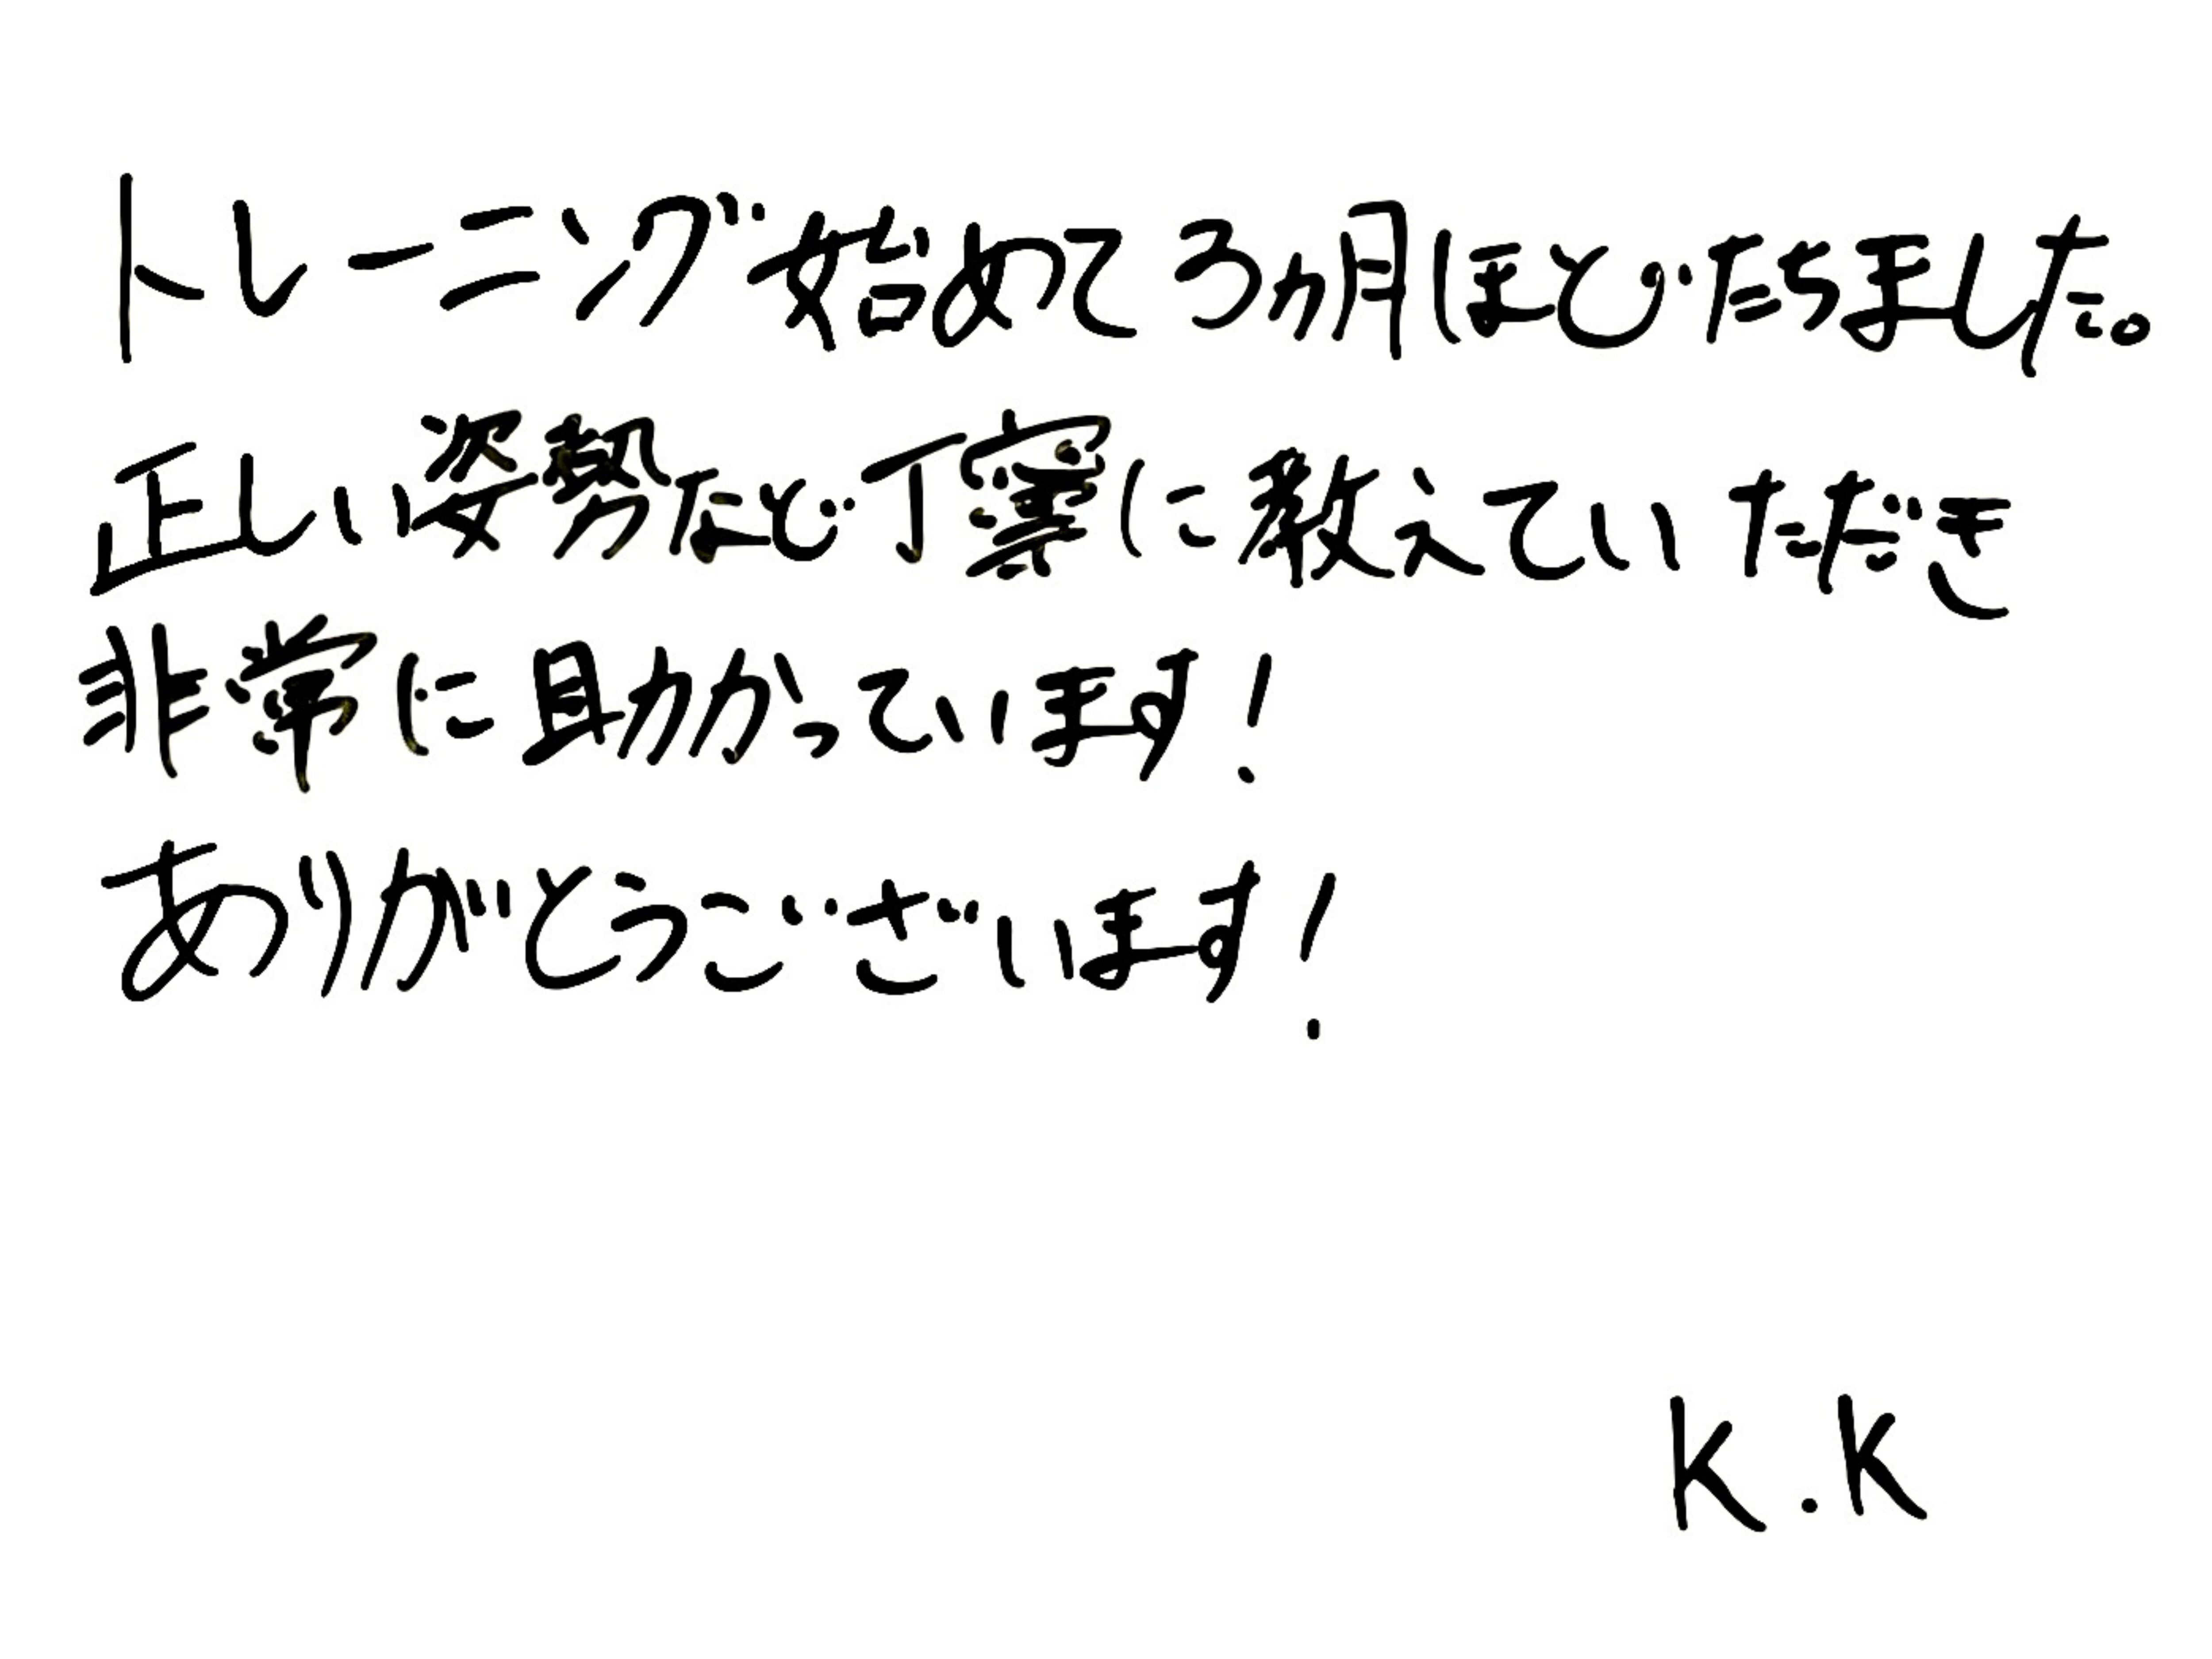 トレーニング始めて3ヵ月ほどたちました。
正しい姿勢など丁寧に教えていただき
非常に助かっています!
ありがとうございます!
K.K